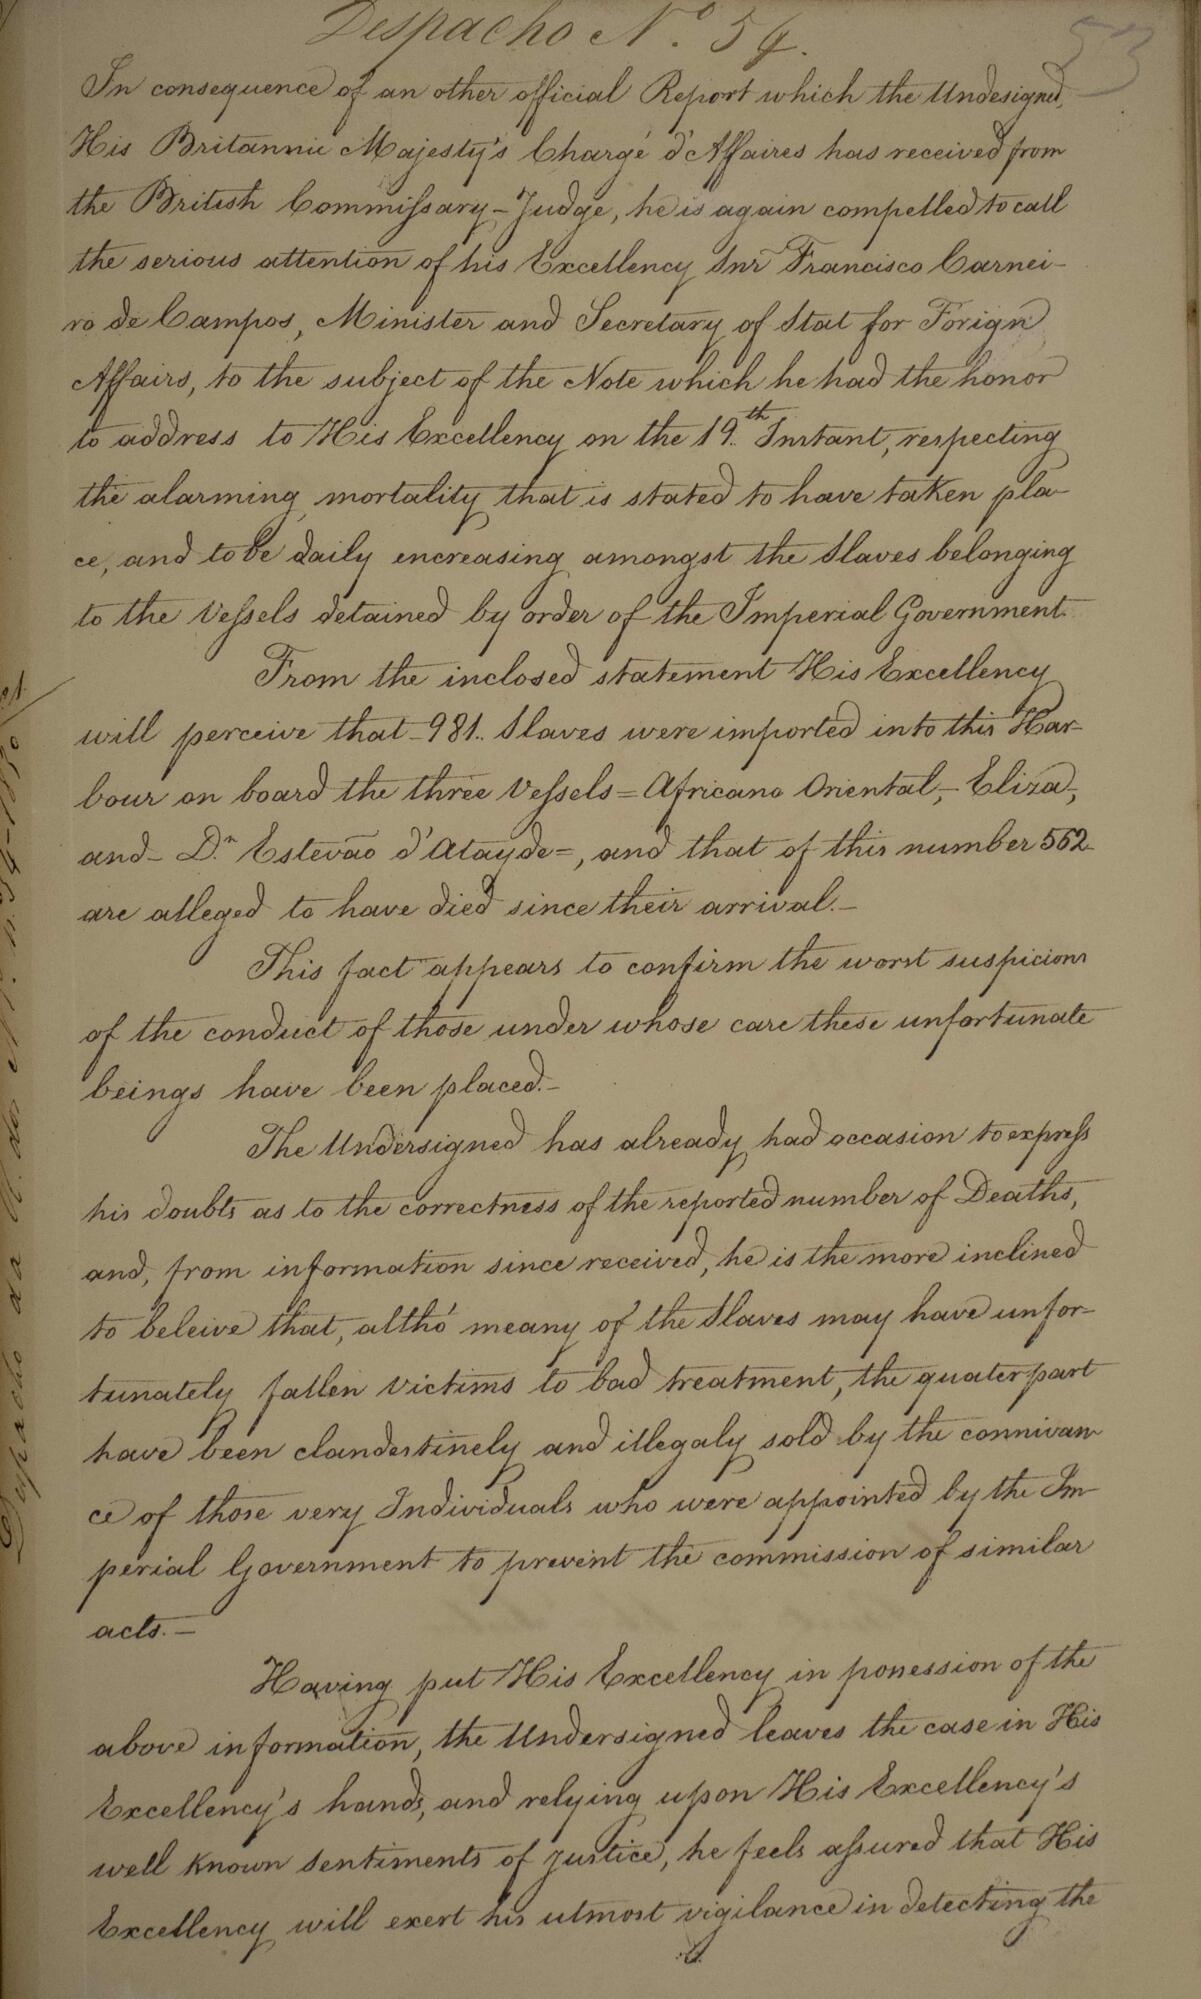 Despacho N.º 54.
53
In consequence of an other official Report which the Undesigned,
His Britannic Majesty's Chargé d'Affaires has received from
the British Commissary-Judge, he is again compelled to call
the serious attention of his Excellency Snr Francisco Carnei-
ro de Campos, Minister and Secretary of Stat for Forign
Affairs, to the subject of the Note which he had the honor
to address to His Excellency on the 19th Instant, respecting
the alarming mortality that is stated to have taken pla-
ce, and to be daily encreasing amongst the Slaves belonging
to the Vessels detained by order of the Imperial Government.
From the inclosed statement His Excellency
will perceive that 981.. Slaves were imported into this Har-
bour on board the three Vessels = Africano Oriental,- Eliza-,
and- D.n Estevão d'Atayde=, and that of this number 552
are alleged to have died since their arrival.-
This fact appears to confirm the worst suspicions
of the conduct of those under whose care these unfortunate
beings have been placed.-
The Undersigned has already had occasion to express
his doubts as to the correctness of the reported number of Deaths,
and, from information since received, he is the more inclined
to beleive that, altho' meany of the Slaves may have unfor-
tunately fallen victims to bad treatment, the quater part
have been clandestinely and illegaly sold by the connivan-
ce of those very Individuals who were appointed by the Im-
perial Government to prevent the commission of similar
acts.-
Having put His Excellency in ponession of the
above information, the Undersigned leaves the case in His
Excellency's hands, and relying upon His Excellency's
well known sentiments of justice, he feels assured that His
Excellency will exert his utmost vigilance in detecting the